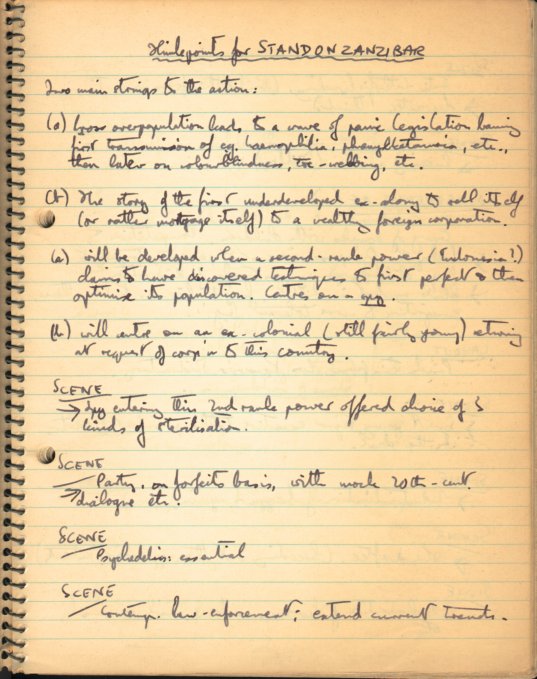 Hingepoints for STAND ON ZANZIBAR
Two main strings to the action:
(a) Gross overpopulation leads to a wave of panic legislation banning
first transmission of eg. haemophilia, phenylketonuria, etc.,
then later on colourblindness, toe-webbing, etc.
(b) The story of the first underdeveloped ex-colony to sell itself
(or rather mortgage itself) to a wealthy foreign corporation.
(a) will be developed when a second-rank power (Indonesia?)
claims to have discovered techniques to first perfect & then
optimise its population. Centres on a spy.
(b) will centre on an ex-colonial (still fairly young)
at request of corp'n to this country.
SCENE
Spy entering this 2nd rank power offered choice of 3
kinds of sterilisation.
SCENE
Party, on forfeits basis, with mock 20th-cent.
dialogue etc.
SCENE
Psychedelics: essential
SCENE
Contemp. law-enforcement: extend current trends.